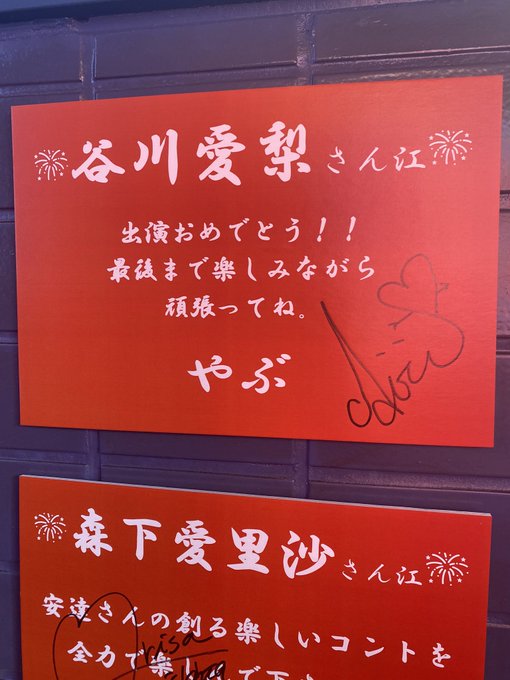 谷川愛梨さん江
出演おめでとう！！
最後まで楽しみながら
頑張ってね。
やぶ
Airi
森下愛里沙さん江
安達さんの創る楽しいコントを
全力で楽し
Arisa